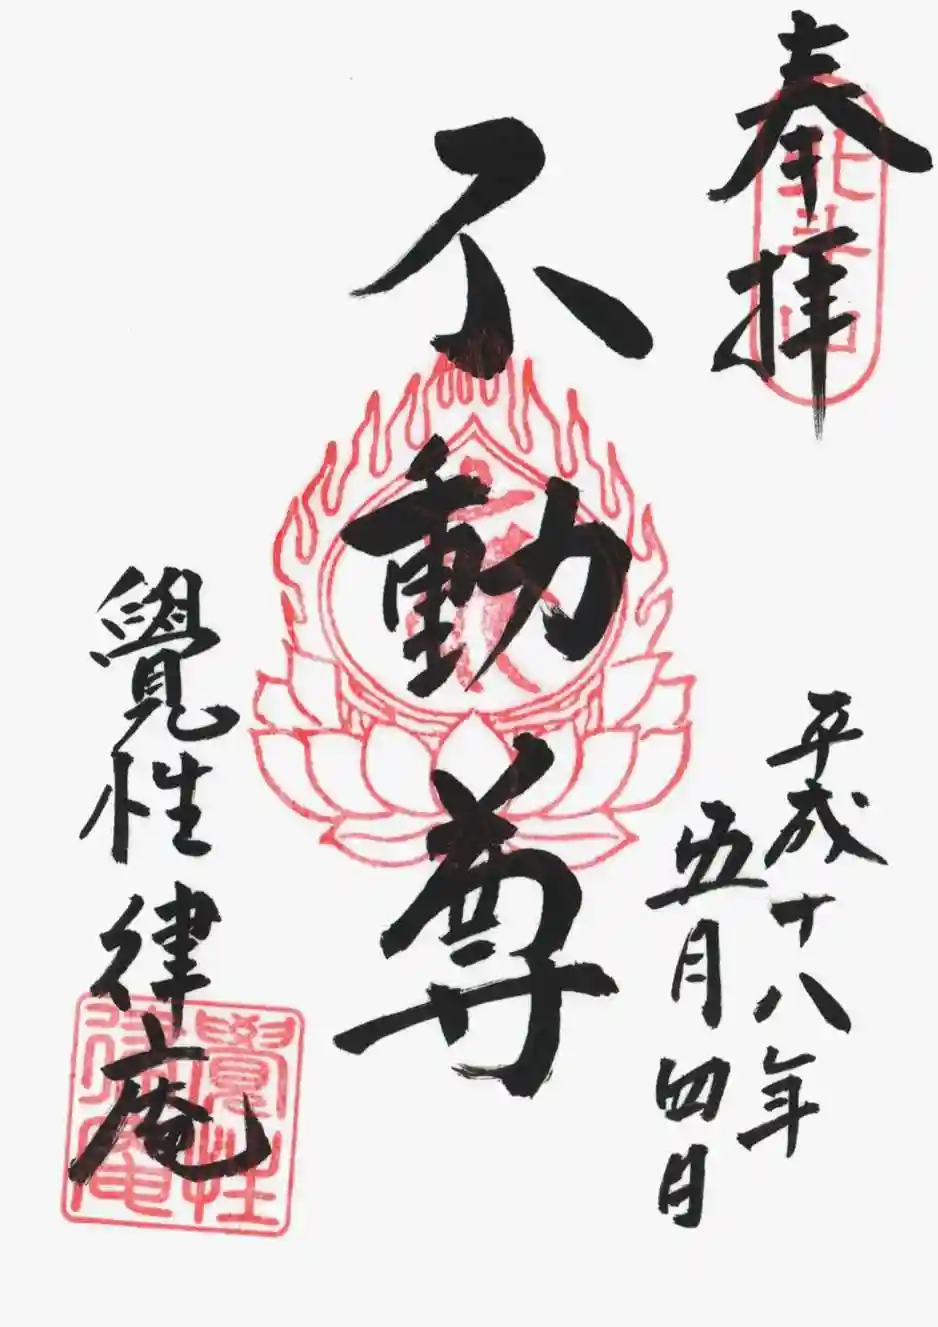 奉拝
北斗山
不動尊
平成十八年
五月四日
覺性律庵
覺性
律庵